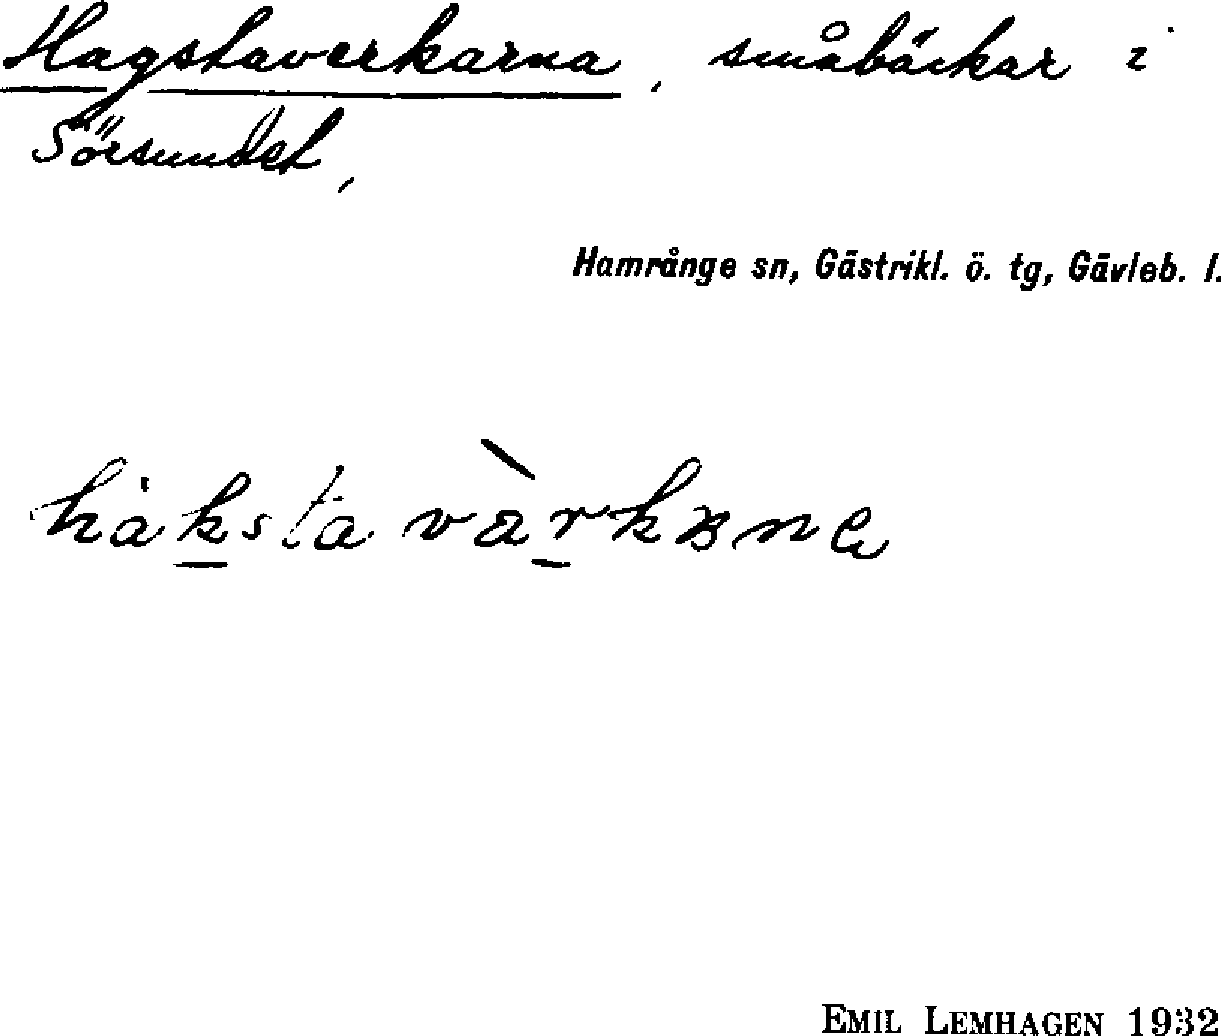 Hagstaverkarna, småbäckar i
Sörsundet,
Hamrånge sn, Gästrikl. ö. tg, Gävleb. l.
EMIL LEMHAGEN 1932